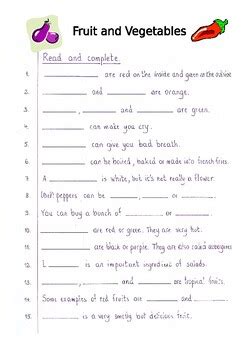 Fruit and Vegetables
Read and complete.
1. ________ are red on the inside and green on the outside
2. ________ and ________ are orange.
3. ________, ________ and ________ are green.
4. ________ can make you cry.
5. ________ can give you bad breath.
6. ________ can be boiled, baked or made into french fries.
7. A ________ is white, but it's not really a flower.
8. peppers can be ________, ________ or ________.
9. You can buy a bunch of ________ or ________.
10. ________ are red or green. They are very hot.
11. ________ are black or purple. They are also called aubergines
12. L________ is an important ingredient of salads.
13. ________, ________ and ________ are tropical fruits.
14. Some examples of red fruits are ________ and ________.
15. ________ is a very smelly but delicious fruit.